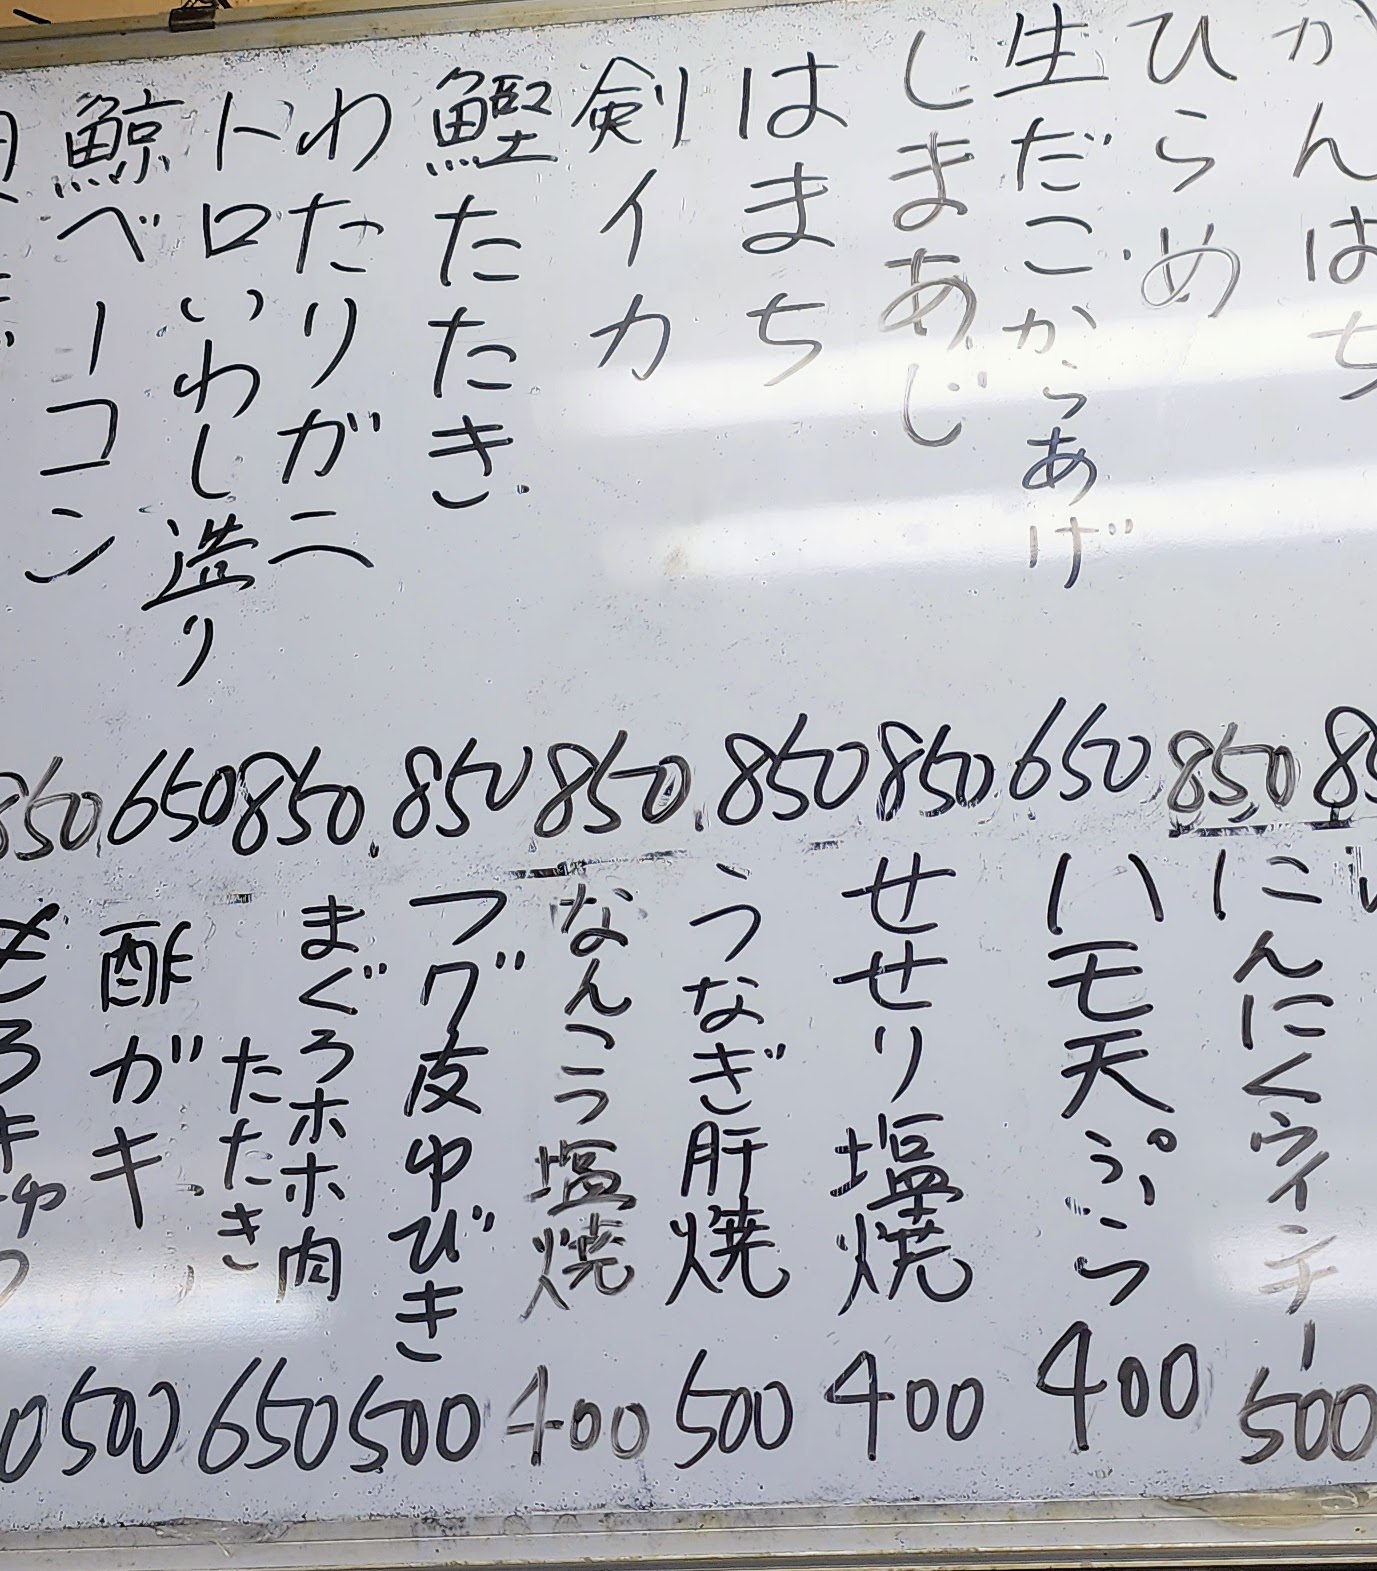 かんぱち
ひらめ 850
生だこからあげ 650
しまあじ 850
はまち 850
剣イカ 850
鰹たたき 850
わたりガニ 850
トロいわし造り 650
鯨ベーコン 850
にんにくウインナー 500
ハモ天ぷら 400
せせり塩焼 400
うなぎ肝焼 500
なんこつ塩焼 400
フグ皮ゆびき 500
まぐろホホ肉
たたき 650
酢ガキ 500